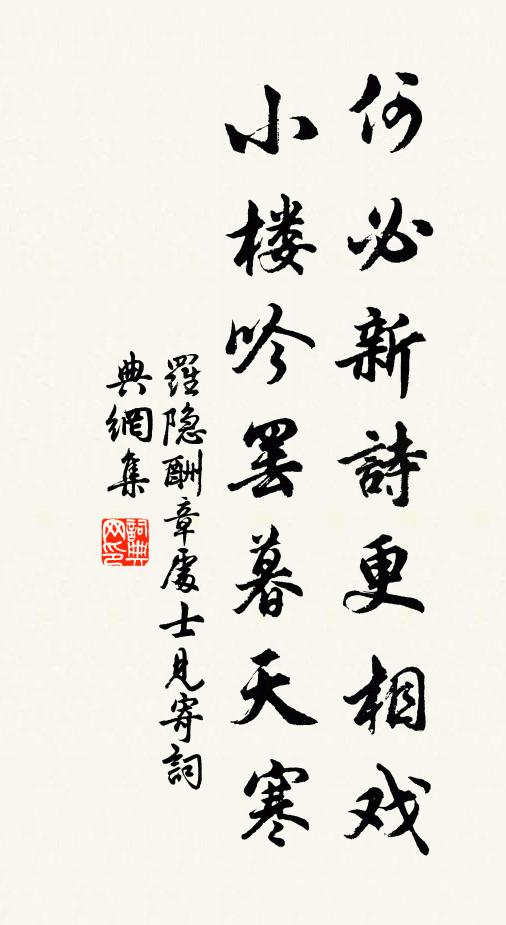 何必新詩更相戏
小楼吟罢暮天寒
羅隐酬章處士見寄詞
典網集
詞典网印